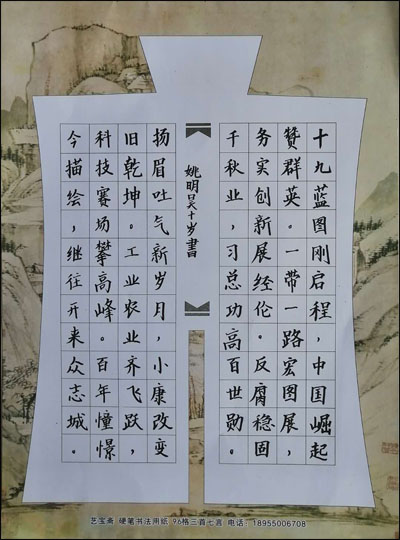 十九蓝图刚启程，中国崛起
贊群英。一带一路宏图展，
务实创新展经伦。反腐稳固
千秋业，习总功高百世勋。
姚明吴十岁書
扬眉吐气新岁月，小康改变
旧乾坤。工业农业齐飞跃，
科技赛场攀高峰。百年憧憬
今描绘，继往开来众志城。
艺宝斋 硬笔书法用纸 96格三首七言 电话：18955006708